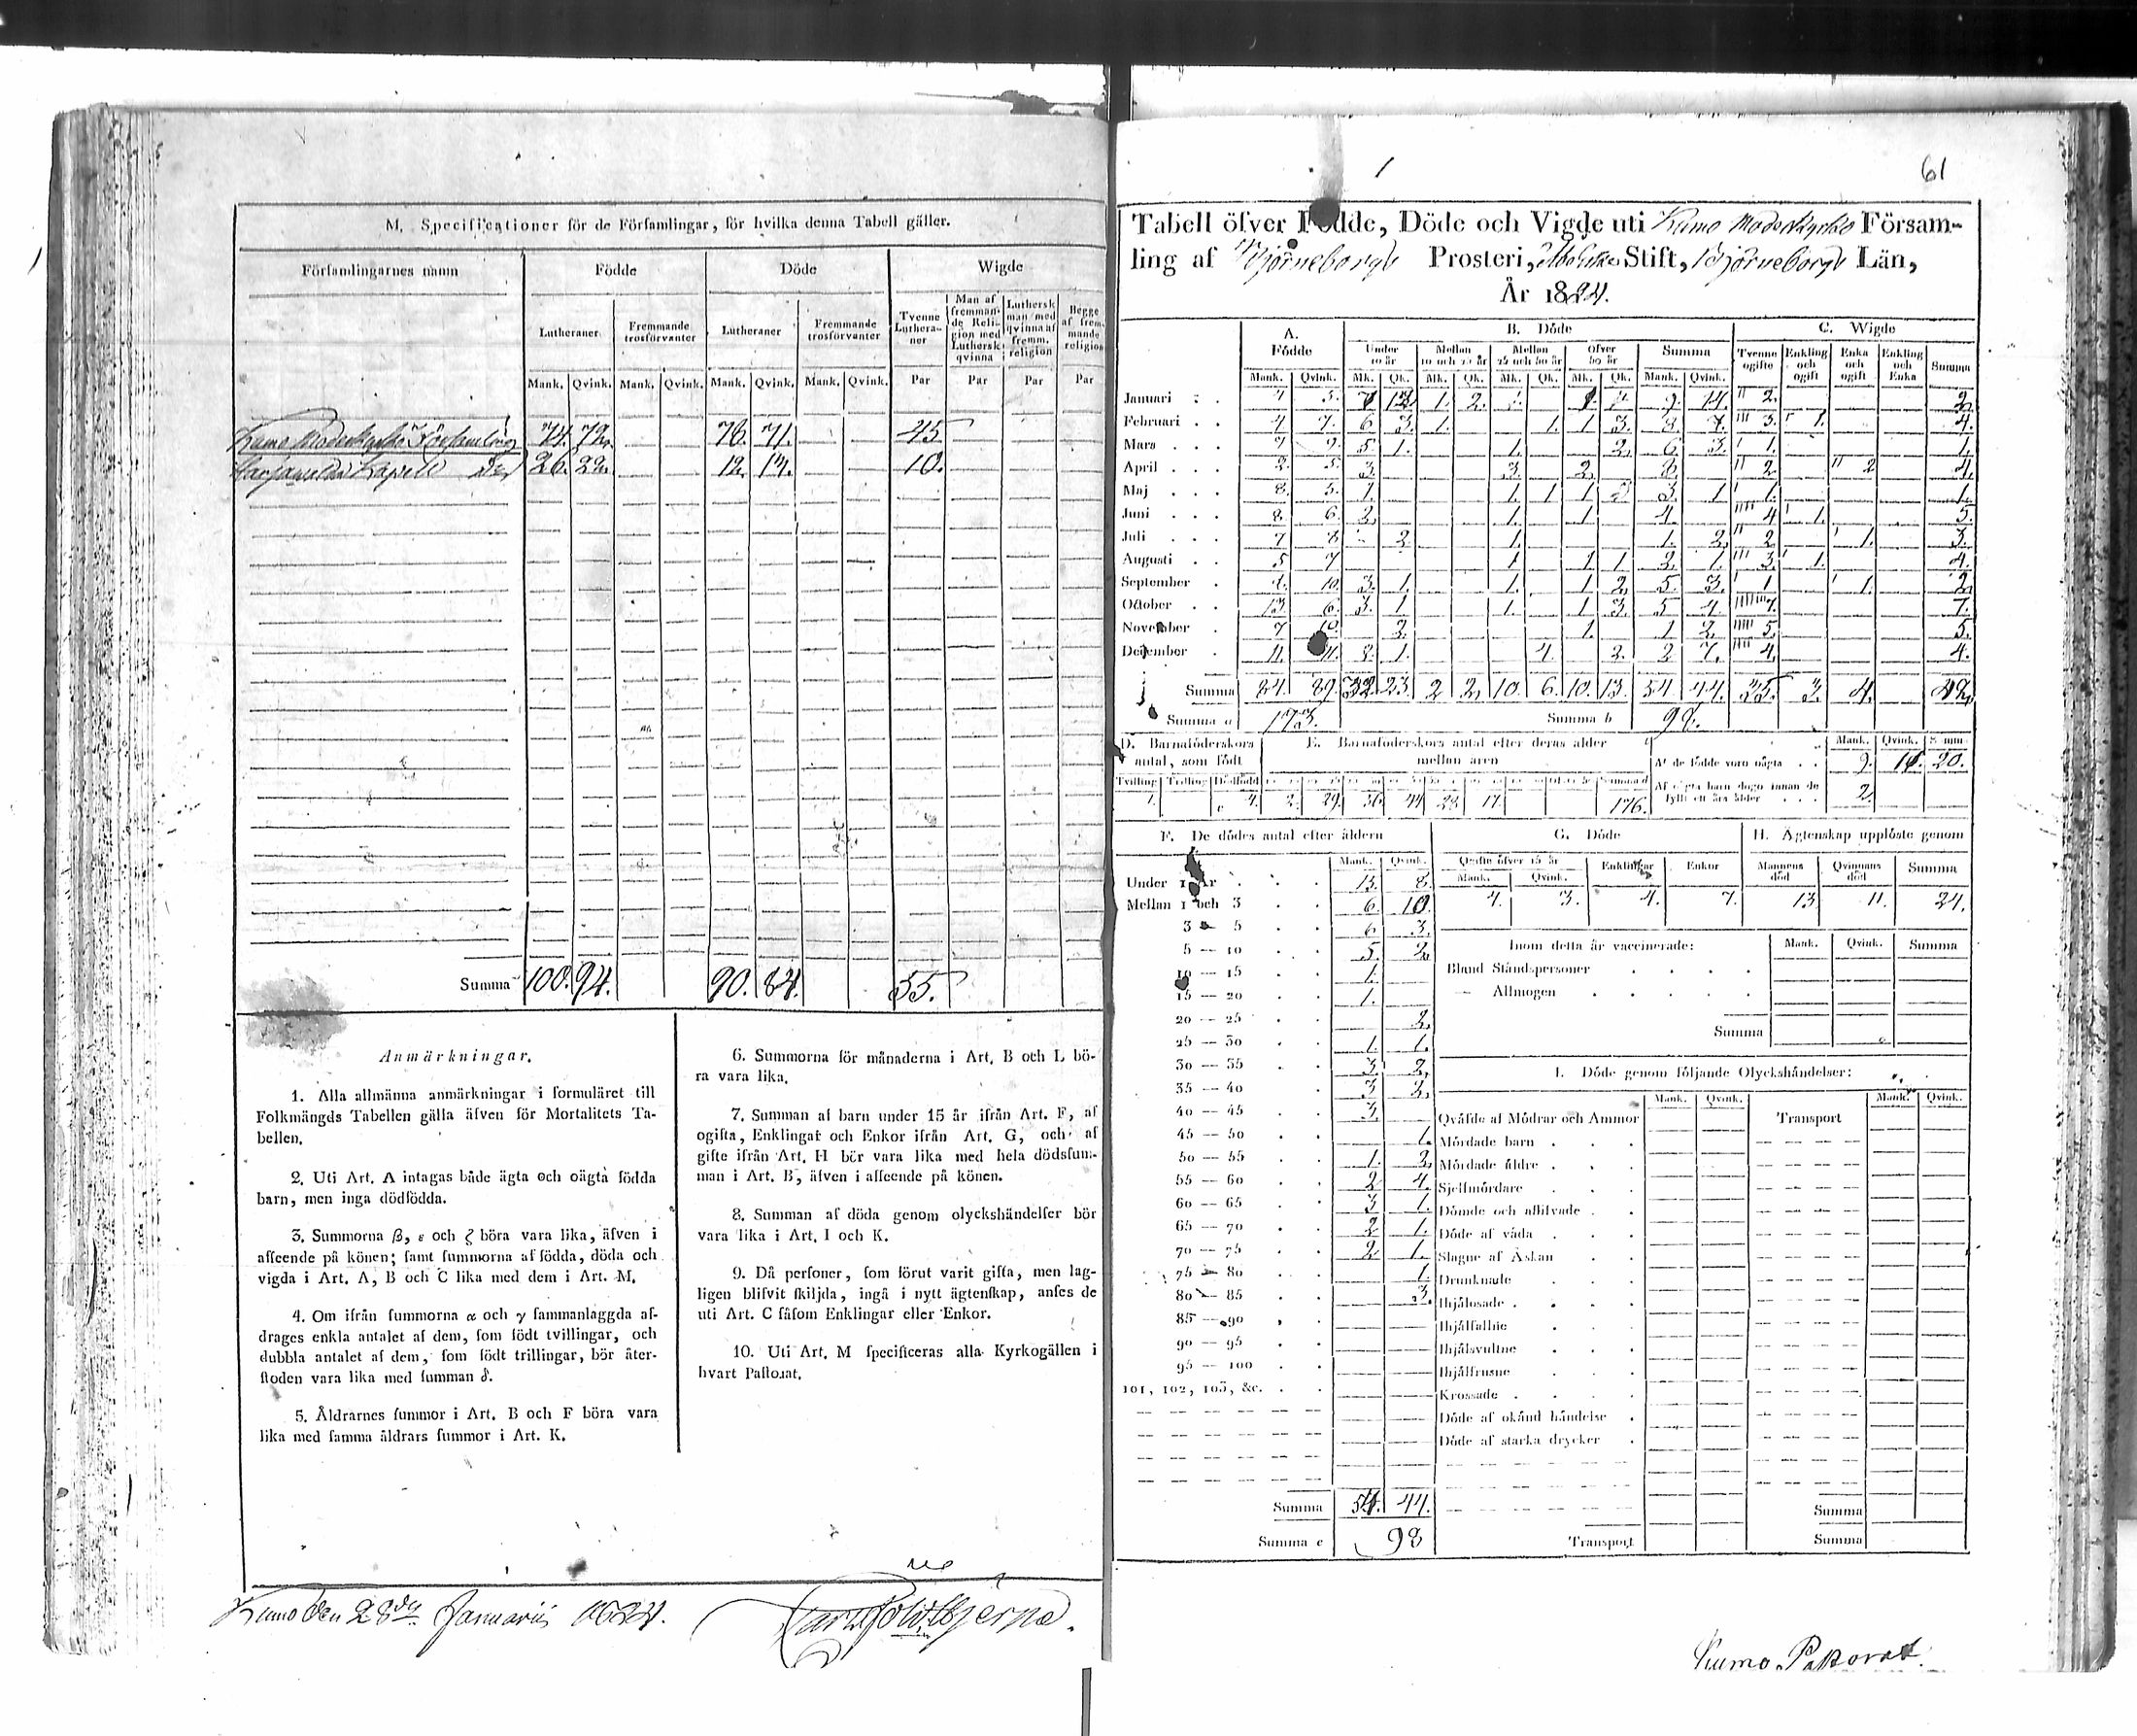 M. Specificationer för de Församlingar, för hvilka denna Tabell gäller.
Församlingarnes namn Födde Döde Wigde
Lutheraner Fremmande trosförvanter Lutheraner Fremmande trosförvanter Tvenne Lutheraner Man af fremmande Religion med Luthersk qvinna Luthersk man med qvinna af fremm. religion Begge af fremmande religion
Mank. Qvink. Mank. Qvink. Mank. Qvink. Mank. Qvink. Par Par Par Par
Kumo Moderkyrko Församling 74. 72. 76. 71. 45
Kapell 26. 22. 12. 10.
Summa 100. 94. 90. 84. 55.
Anmärkningar.
1. Alla allmänna anmärkningar i formuläret till
Folkmängds Tabellen gälla äfven för Mortalitets Ta-
bellen.
2. Uti Art. A intagas både ägta och oägta födda
barn, men inga dödfödda.
3. Summorna β, ε och ζ böra vara lika, äfven i
affeende på könen; samt summorna af födda, döda och
vigda i Art. A, B och C lika med dem i Art. M.
4. Om ifrån summorna α och γ sammanlaggda af-
drages enkla antalet af dem, som födt tvillingar, och
dubbla antalet af dem, som födt trillingar, bör åter-
stoden vara lika med summan δ.
5. Åldrarnes summor i Art. B och F böra vara
lika med samma åldrars summor i Art. K.
6. Summorna för månaderna i Art. B och L bö-
ra vara lika.
7. Summan af barn under 15 år ifrån Art. F, af
ogifta, Enklingar och Enkor ifrån Art. G, och af
gifte ifrån Art. H bör vara lika med hela dödssum-
man i Art. B, äfven i affeende på könen.
8. Summan af döda genom olyckshändelser bör
vara lika i Art. I och K.
9. Då personer, som förut varit gifta, men lag-
ligen blifvit skiljda, ingå i nytt ägtenskap, anses de
uti Art. C såsom Enklingar eller Enkor.
10. Uti Art. M specificeras alla Kyrkogällen i
hvart Pastorat.
Kumo den 28de Januarii
61
Tabell öfver Födde, Döde och Vigde uti Kumo Moderkyrko Försam-
ling af Björneborgs Prosteri, Stift, Björneborgs Län,
År 1824.
A. Födde B. Döde C. Wigde
Under 10 år Mellan 10 och 25 år Mellan 25 och 50 år Öfver 50 år Summa Tvenne ogifte Enkling och ogift Enka och ogift Enkling och Enka Summa
Mank. Qvink. Mk. Qk. Mk. Qk. Mk. Qk. Mk. Qk. Mank. Qvink.
Januari 1. 2. 9. 14. 2. 2.
Februari 4 7. 6 3. 1. 1. 1 3. 8 7. 3. 1. 4.
Mars 5. 1. 1. 2. 6 3. 1. 1.
April 2. 5. 3. 3. 2. 8. 2 2 4.
Maj 8. 5. 1. 1. 1 1 3. 1 1. 1.
Juni 8. 6. 2. 1. 1 4. 4 1. 5.
Juli 7 8 2. 1. 1. 2. 2 1. 3.
Augusti 5 7 1 1 1 2. 1. 3. 1. 4.
September 10. 3. 1. 1. 1 2. 5. 3. 1 1. 2.
October 13. 6. 3. 1 1. 1 3. 5 4. 7. 7.
November 7 10. 2. 1. 1 2. 5. 5.
December 11. 11. 2. 1. 4. 2. 2 7. 4. 4.
Summa 84. 89. 32. 23. 2 2. 10. 6. 10. 13. 54. 44. 35. 3. 4. 42.
Summa a 173. Summa b 98.
D. Barnaföderskors antal, som födt
E. Barnaföderskors antal efter deras ålder mellan åren
Mank. Qvink. Summ.
Af de födde voro oägta 9. 11. 20.
Af oägta barn dogo innan de fyllt ett års ålder 2.
Tvilling Trilling Dödfödd
1. 4. 2. 29. 36. 44 17. 176.
F. De dödes antal efter åldern G. Döde H. Ägtenskap upplöste genom
Mank. Qvink. Ogifte öfver 15 år Enklingar Enkor Mannens död Qvinnans död Summa
Mank. Qvink.
4. 3. 4. 7. 13 11. 24.
Under 1 År 13. 8.
Mellan 1 och 3 6. 10.
3 — 5 6 3.
5 — 10 5. 2.
10 — 15 1.
15 — 20 1.
20 — 25 2.
25 — 30 1. 1.
30 — 35 3 2.
35 — 40 3 2.
40 — 45 3.
45 — 50 1.
50 — 55 1. 2.
55 — 60 2 4.
60 — 65 3 1.
65 — 70 2 1.
70 — 75 2 1.
75 — 80 1.
80 — 85 3.
85 — 90
90 — 95
95 — 100
101, 102, 103, &c.
Summa 54. 44.
Summa c 98
Inom detta år vaccinerade: Mank. Qvink. Summa
Bland Ståndspersoner
— Allmogen
Summa
I. Döde genom följande Olyckshändelser:
Mank. Qvink. Mank. Qvink.
Qväfde af Mödrar och Ammor Transport
Mördade barn
Mördade äldre
Sjelfmördare
Dömde och aflifvade
Döde af våda
Slagne af Åskan
Drunknade
Ihjälosade
Ihjälfallne
Ihjälsvultne
Ihjälfrusne
Krossade
Döde af okänd händelse
Döde af starka drycker
Summa
Transport Summa
Kumo Pastorat.